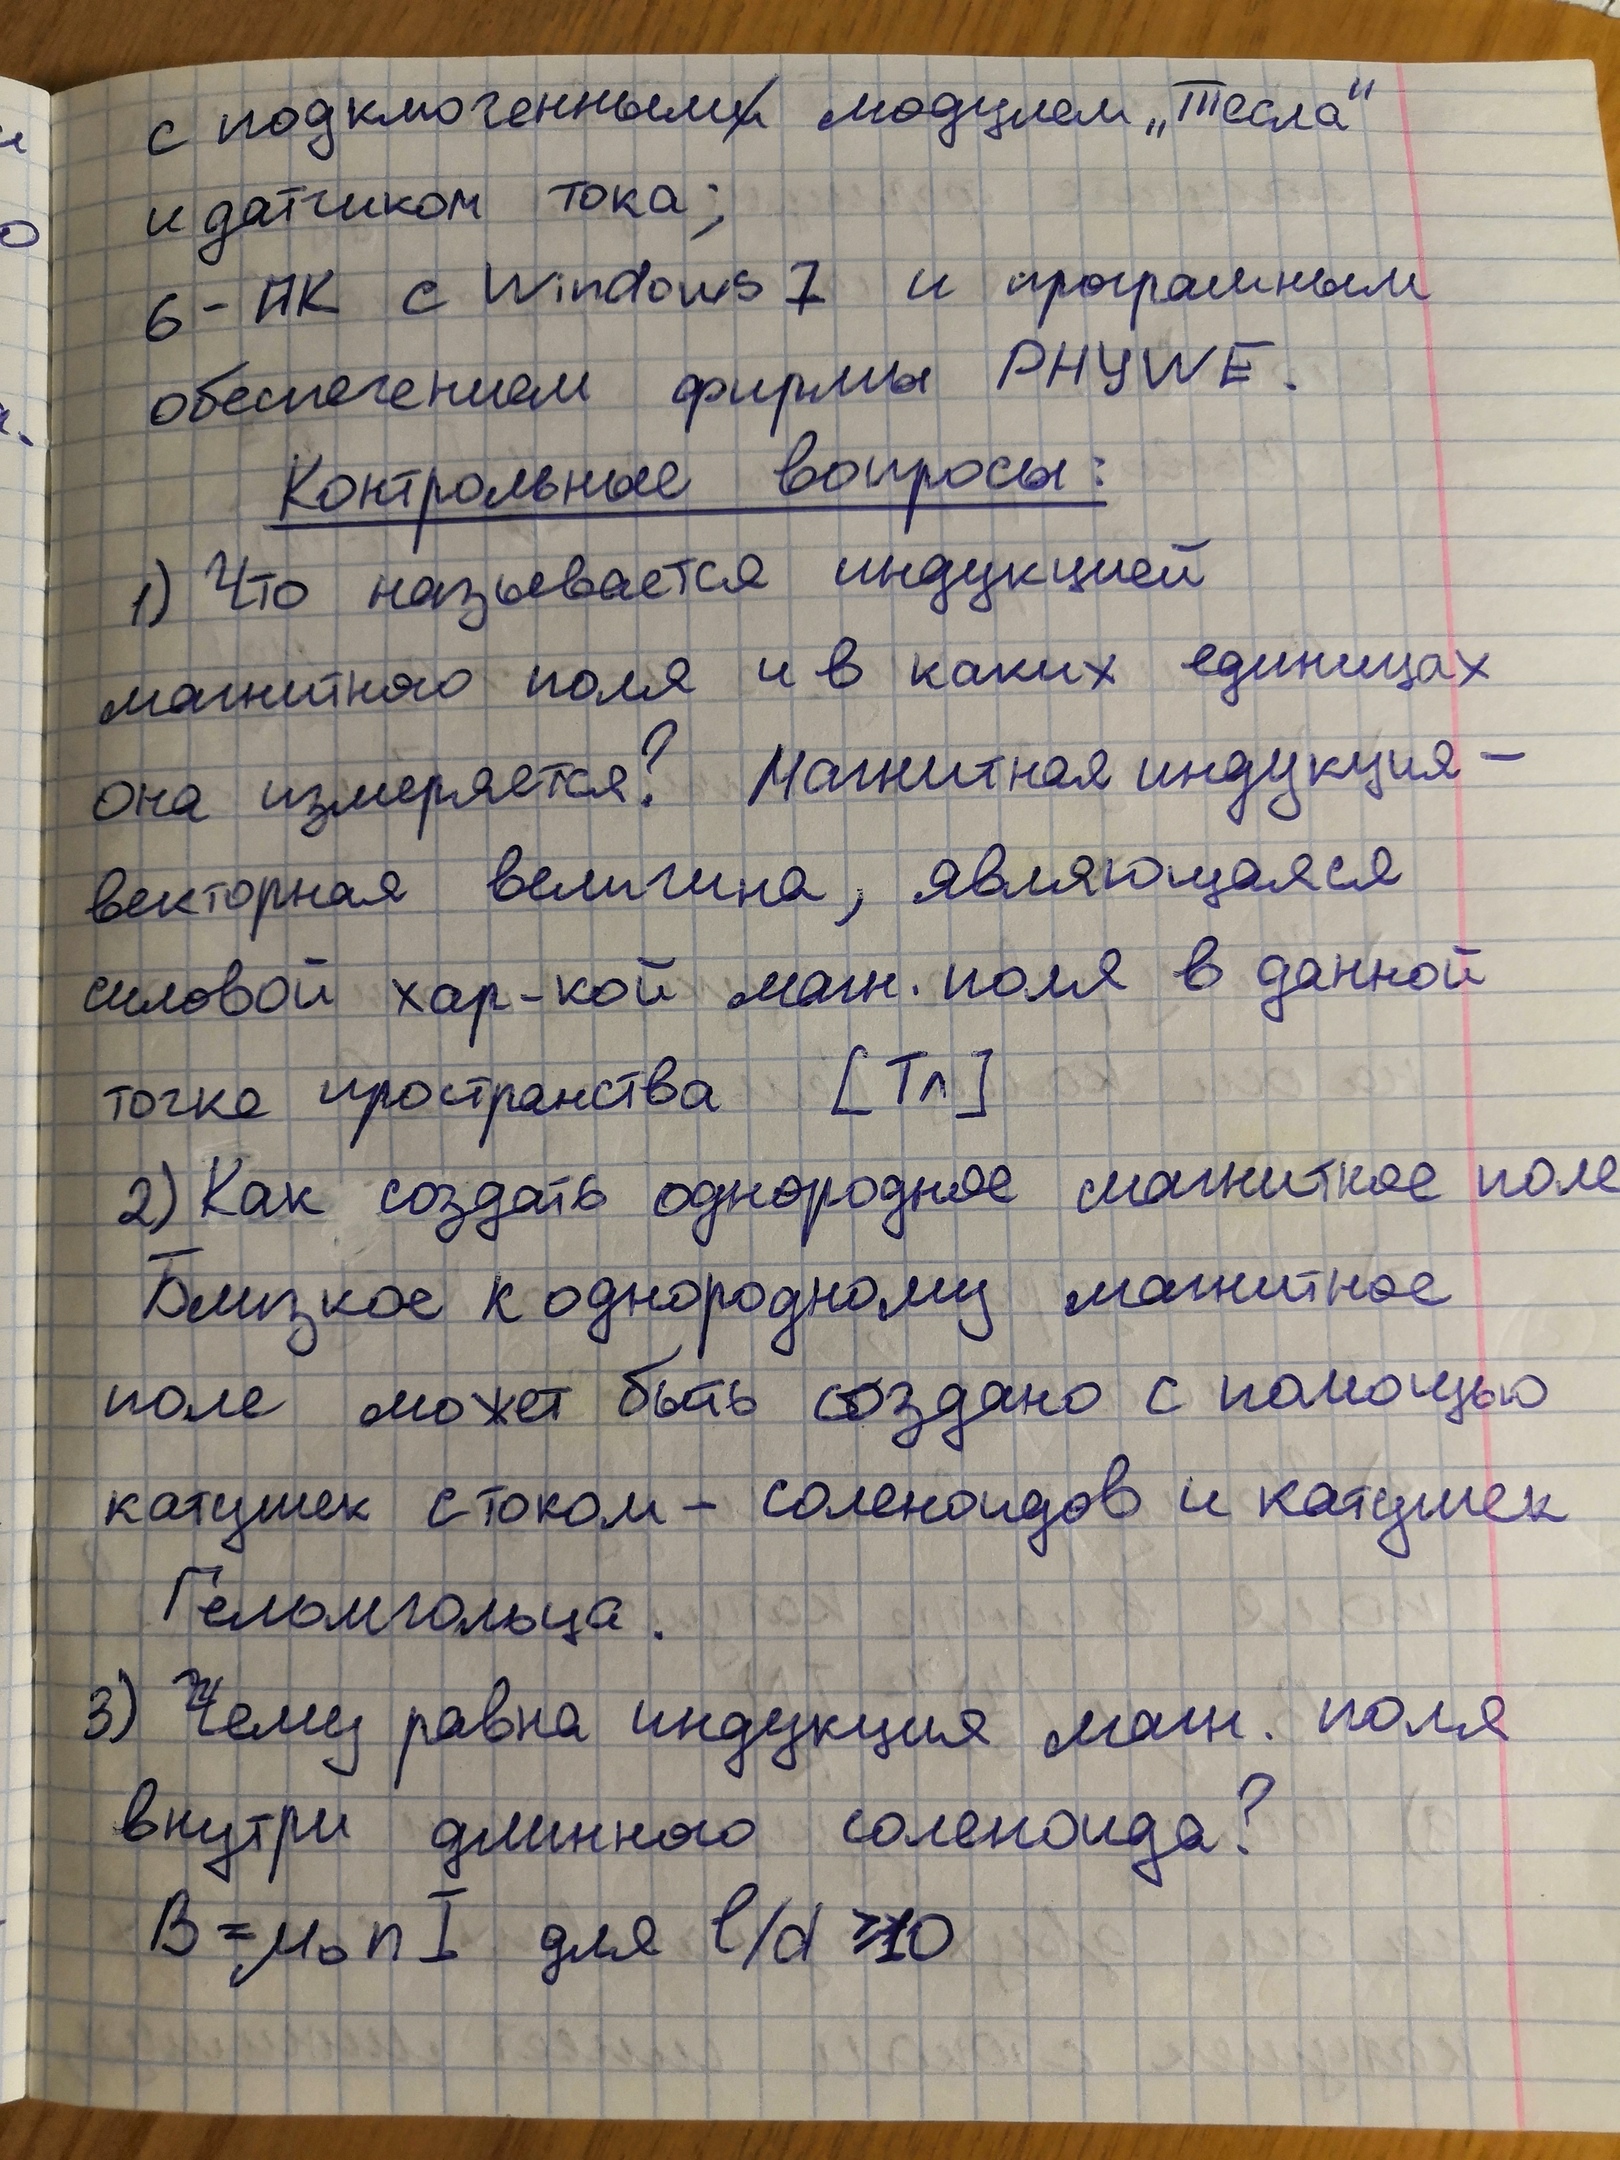 с подключенным модулем „Тесла“
и датчиком тока;
6 - ПК с Windows 7 и програмным
обеспечением фирмы PHYWE.
Контрольные вопросы:
1) Что называется индукцией
магнитного поля и в каких единицах
она измеряется? Магнитная индукция -
векторная величина, являющаяся
силовой хар-кой магн. поля в данной
точке пространства [Тл]
2) Как создать однородное магнитное поле
Близкое к однородному магнитное
поле может быть создано с помощью
катушек с током - соленоидов и катушек
Гельмгольца.
3) Чему равна индукция магн. поля
внутри длинного соленоида?
B = μ₀ n I для l/d ≥ 10